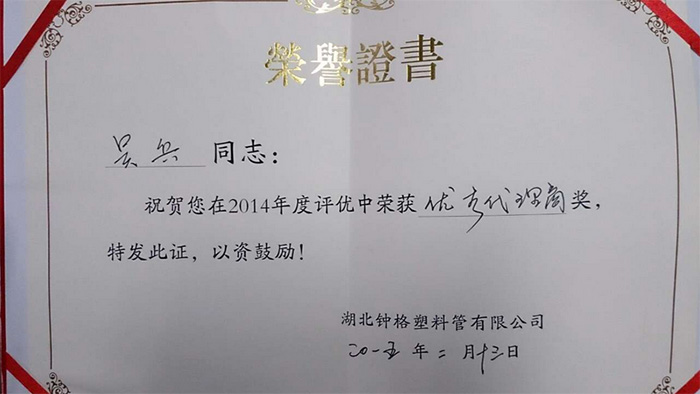 榮譽證書
吴兵 同志：
祝贺您在2014年度评优中荣获 优秀代理商奖，
特发此证，以资鼓励！
湖北钟格塑料管有限公司
二〇一五年二月十三日